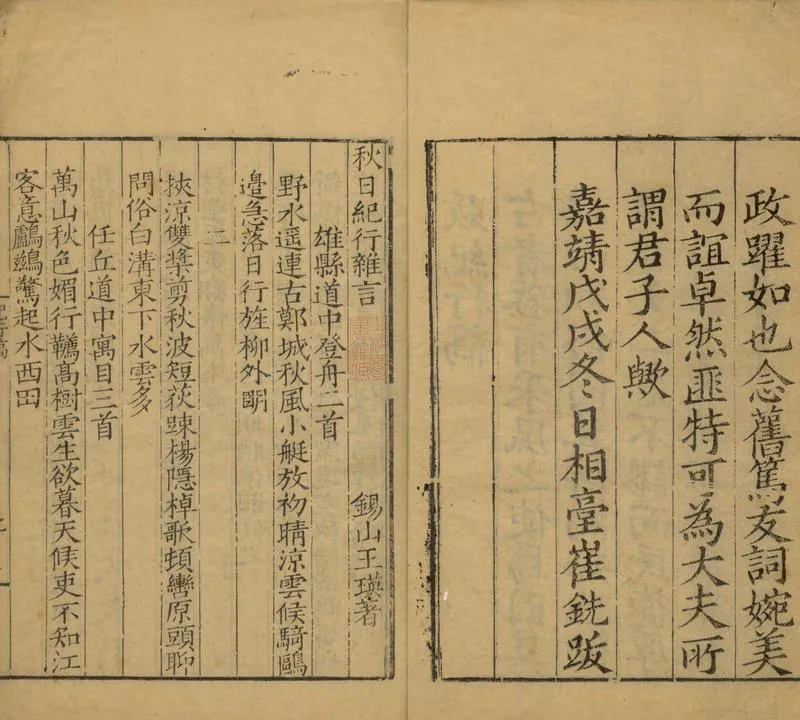 政躍如也念舊篤友詞婉美
而誼卓然匪特可為大夫所
謂君子人歟
嘉靖戊戌冬日相臺崔銑跋
秋日紀行雜言 錫山王瑛著
雄縣道中登舟二首
野水遥連古鄚城秋風小艇放初晴涼雲候騎鷗
邉急落日行旌柳外明
二
挾涼雙槳剪秋波短荻踈楊隱棹歌頓轡原頭聊
問俗白溝東下水雲多
任丘道中寓目三首
萬山秋色媚行韉髙樹雲生欲暮天候吏不知江
客意鸕鷀驚起水西田